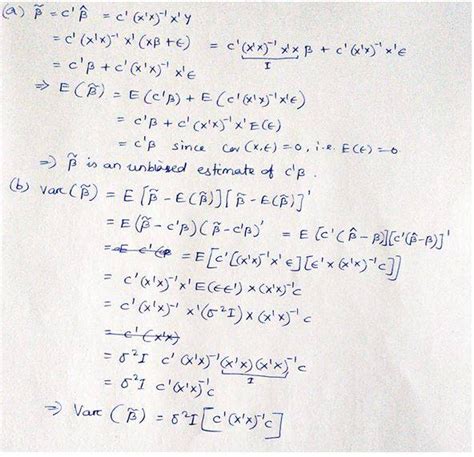 (a) β̃ = c'β̂ = c'(x'x)⁻¹x'y
= c'(x'x)⁻¹ x'(xβ+ε) = c'(x'x)⁻¹x'x β + c'(x'x)⁻¹x'ε
I
= c'β + c'(x'x)⁻¹ x'ε
⇒ E(β̃) = E(c'β) + E(c'(x'x)⁻¹x'ε)
= c'β + c'(x'x)⁻¹x'E(ε)
= c'β since cov(x,ε)=0, i.e. E(ε)=0
⇒ β̃ is an unbiased estimate of c'β.
(b) Var(β̃) = E[β̃ - E(β̃)][β̃ - E(β̃)]'
= E(β̃ - c'β)(β̃ - c'β)' = E[c'(β̂ - β)][c'(β̂-β)]'
= E c'(β = E[c'[(x'x)⁻¹x'ε][ε'x(x'x)⁻¹c]]
= c'(x'x)⁻¹x'E(εε')x(x'x)⁻¹c
= c'(x'x)⁻¹ x'(σ²I)x(x'x)⁻¹c
= c'(x'x)
= σ²I c'(x'x)⁻¹(x'x)(x'x)⁻¹c
I
= σ²I c'(x'x)⁻¹c
⇒ Var(β̃) = σ²I[c'(x'x)⁻¹c]